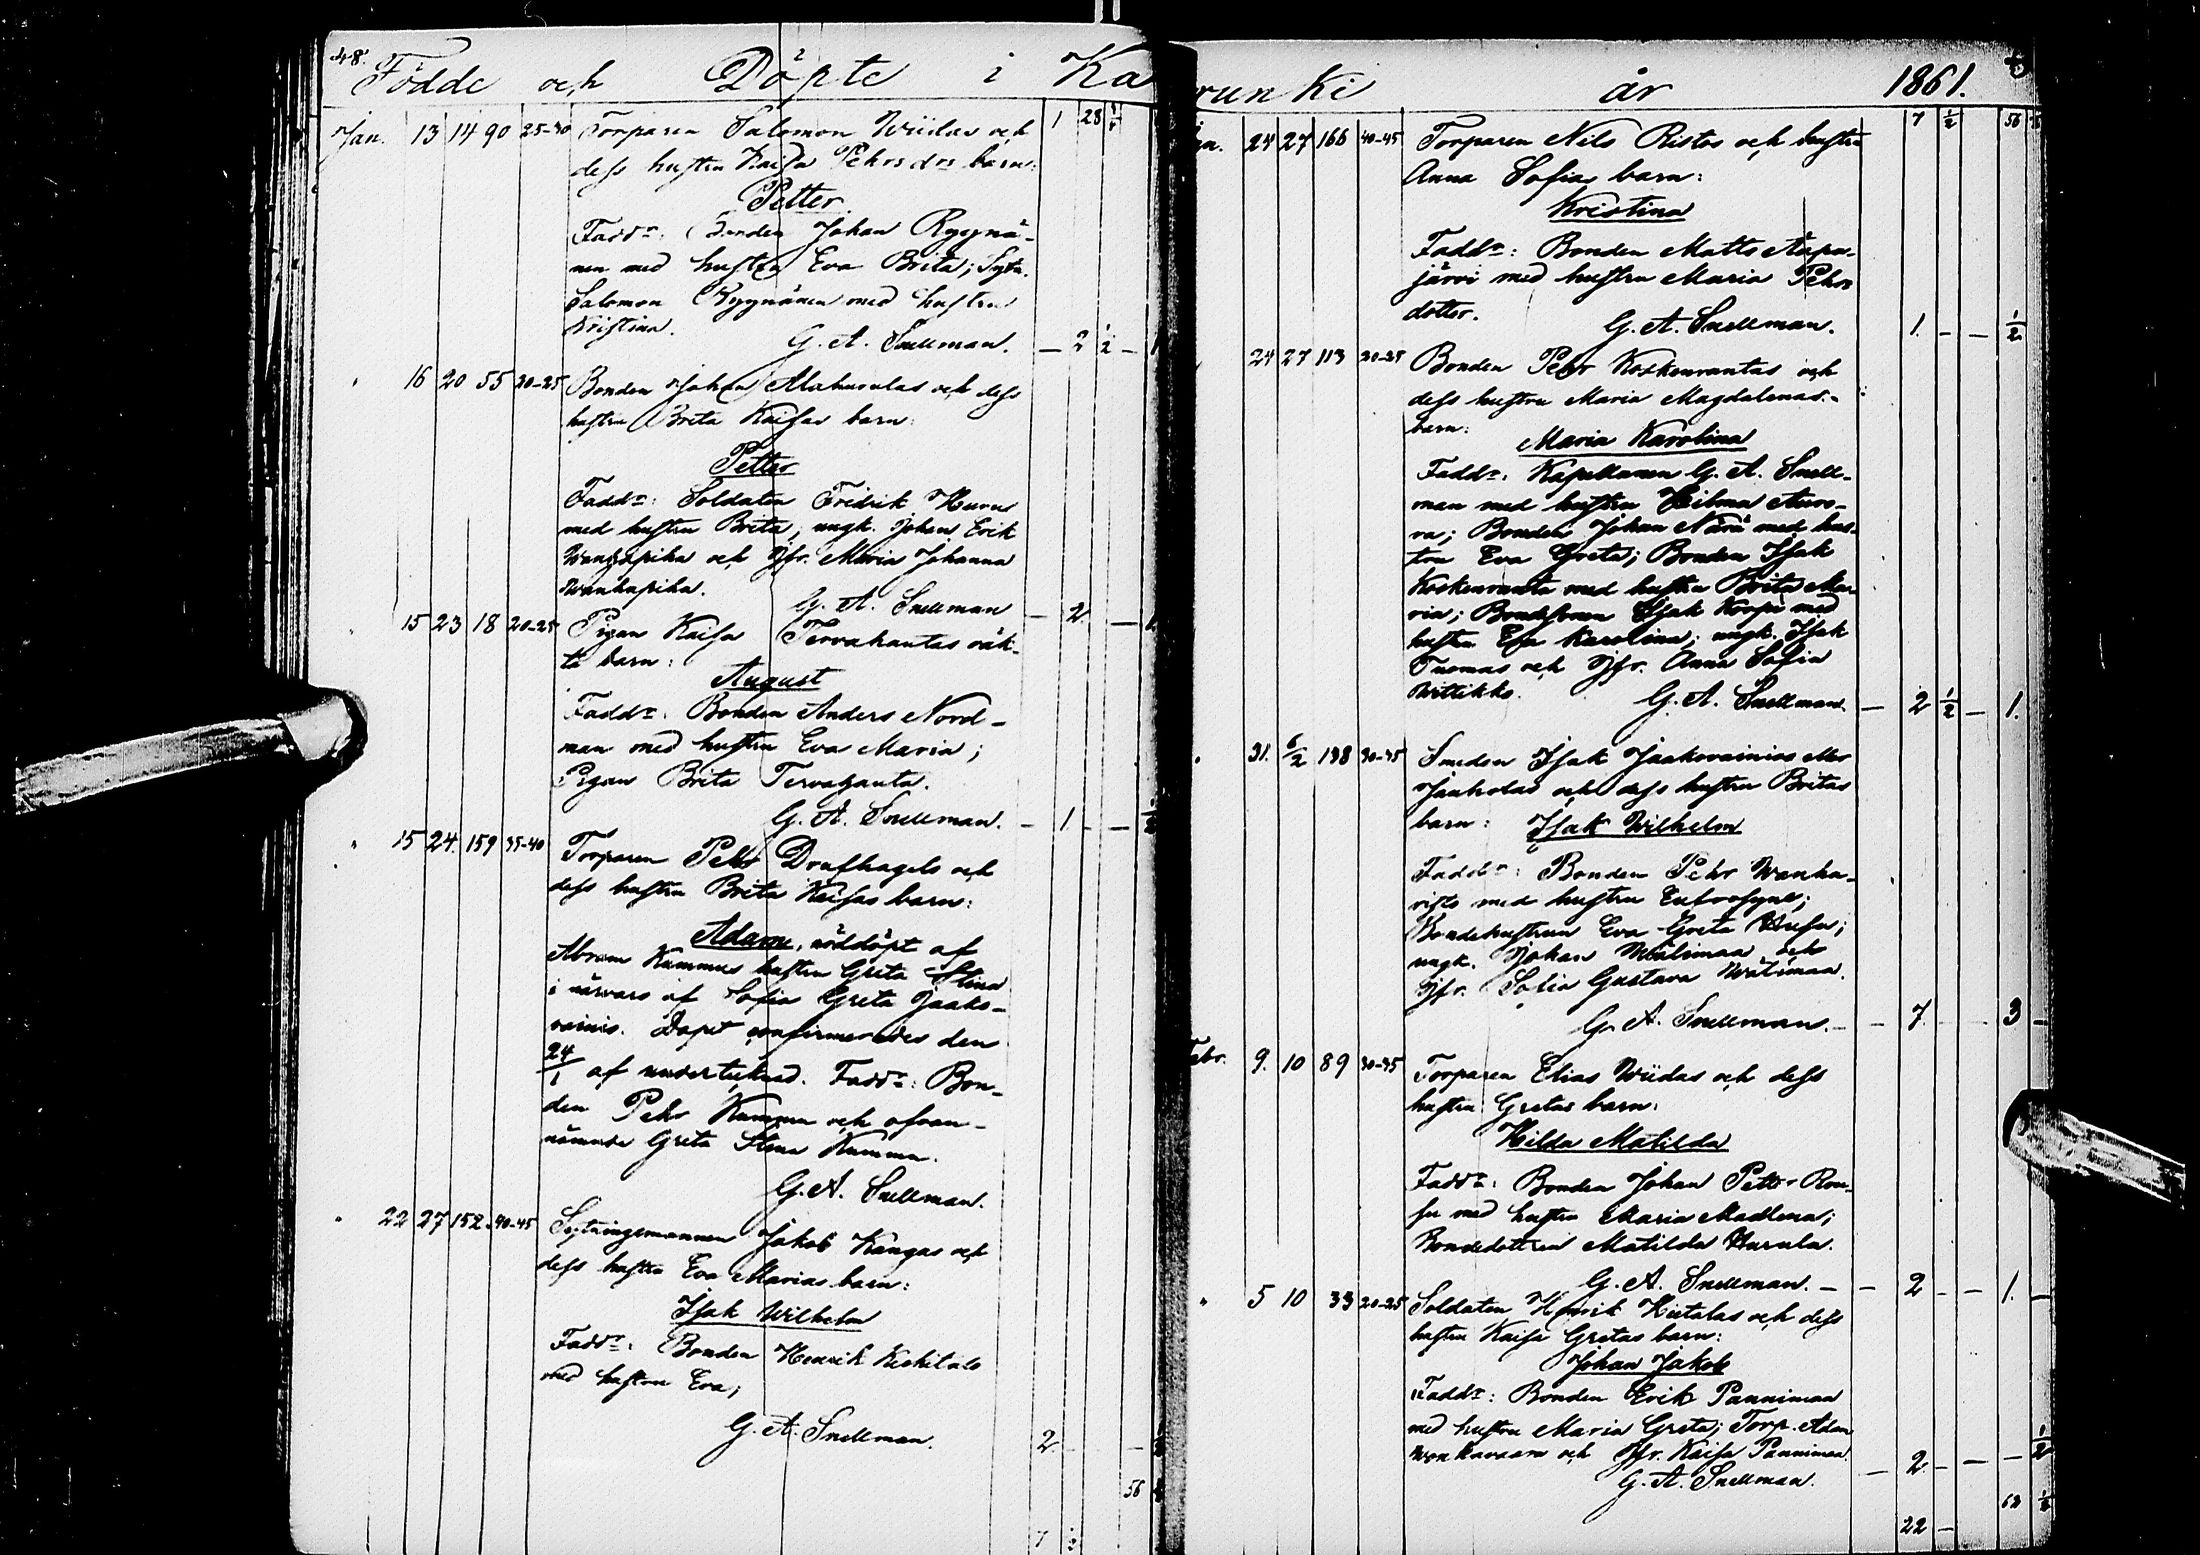 48.
Födde och Döpte i Ka
Jan. 13 14 90 25-30 Torparen Salomon Wiidas och 1 28
dess hustru Kaisa Pehrsdrs barn:
Petter.
Faddr: Bonden Johan Ryynä-
nen med hustru Eva Brita; Sytn.
Salomon Ryynänen med hustru
Kristina.
G. A. Snellman. — 2 ½ —
" 16 20 55 20-25 Bonden Johan och dess
hustru Brita Kaisas barn:
Petter
Faddr: Soldaten Fredrik Hurus
med hustru Brita; ungk. Johan Erik
Wanhapiha och Jfr. Maria Johanna
Wanhapiha.
G. A. Snellman — 2 —
" 15 23 18 20-25 Pigan Kaisa Tervahautas oäk-
ta barn:
August
Faddr: Bonden Anders Nord-
man med hustru Eva Maria;
Pigan Brita Tervahauta.
G. A. Snellman. — 1. — —
" 15 24. 159 35-40 Torparen Pehr Drufhagels och
dess hustru Brita Kaisas barn:
Adam, nöddöpt af
Abram Kummus hustru Greta Stina
i närvaro af Sofia Greta Jaako-
vainio. Dopet confirmerades den
24/1 af undertecknad. Faddr: Bon-
den Pehr Kummu och ofvan-
nämnde Greta Stina Kummu.
G. A. Snellman.
" 22 27 152 40-45 Sextningsmannen Jakob Kangas och
dess hustru Eva Marias barn:
Isak Wilhelm
Faddr: Bonden Henrik Keskitalo
med hustru Eva;
G. A. Snellman. 2 —
56
7 ½
runki år 1861.
7 ½ 56
Jan. 24 27 166 40-45 Torparen Nils Ristos och hustru
Anna Sofias barn:
Kristina
Faddr: Bonden Matts Aapa-
järvi med hustru Maria Pehrs
dotter.
G. A. Snellman. 1. — — ½
24 27 113 20-25 Bonden Pehr Koskenrantas och
dess hustru Maria Magdalenas
barn:
Maria Karolina
Faddr: Kapellanen G. A. Snell-
man med hustru Hilma Auro-
ra; Bonden Johan Närä med hus-
tru Eva Greta; Bonden Isak
Koskenranta med hustru Brita Ma-
ria; Bondesonen Isak Korpi med
hustru Eva Karolina; ungk. Isak
Tuomas och Jfr. Anna Sofia
Wittikko.
G. A. Snellman. — 2 ½ — 1.
" 31. 6/2 138 30-35 Smeden Isak Jaakovainios eller
Jaakolas och dess hustru Britas
barn: Isak Wilhelm
Faddr: Bonden Pehr Wanha-
risto med hustru Eufrosyne;
Bondehustrun Eva Greta
ungk. Johan Wälimaa och
Jfr. Sofia Gustava Wälimaa.
G. A. Snellman. — — 7. — 3 —
Febr. 9. 10 89 30-35 Torparen Elias Wiidas och dess
hustru Gretas barn:
Hilda Matilda
Faddr: Bonden Johan Petter Rou-
su med hustru Maria Madlena;
Bondedottren Matilda Hurula.
G. A. Snellman. — — 2 — — 1. —
" 5 10 33 20-25 Soldaten Henrik Hietalas och dess
hustru Kaisa Gretas barn:
Johan Jakob
Faddr: Bonden Erik Pannimaa
med hustru Maria Greta; Torp. Adam
Wonkavaara och Jfr. Kaisa Pannimaa
G. A. Snellman. — 2 — — — ½
62 ½
22 —